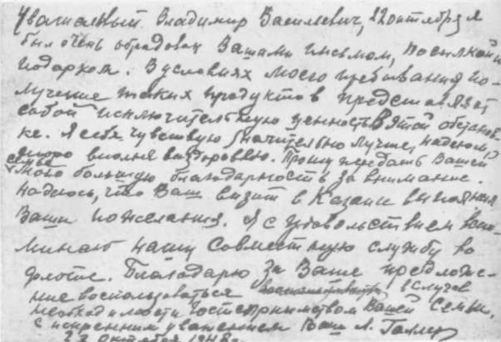 Уважаемый Владимир Васильевич, 22 октября я
был очень обрадован Вашим письмом, посылкой и
подарком. В условиях моего пребывания по-
лучение таких продуктов представляет
собой исключительную ценность в этой обстанов-
ке. Я себя чувствую значительно лучше, надеюсь,
скоро вполне выздоровею. Прошу передать Вашей
мою большую благодарность за внимание.
Надеюсь, что Ваш визит в Казани выполнил
Ваши пожелания. Я с удовольствием вспо-
минаю нашу совместную службу во
флоте. Благодарю за Ваше предложе-
ние воспользоваться в случае
необходимости гостеприимством Вашей семьи.
С искренним уважением Ваш Л. Галлер
23 октября 1948 г.